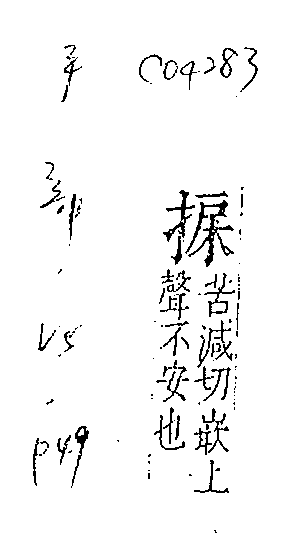 C04283
苦減切嵌上
聲不安也
手
部
.
V5
.
p49